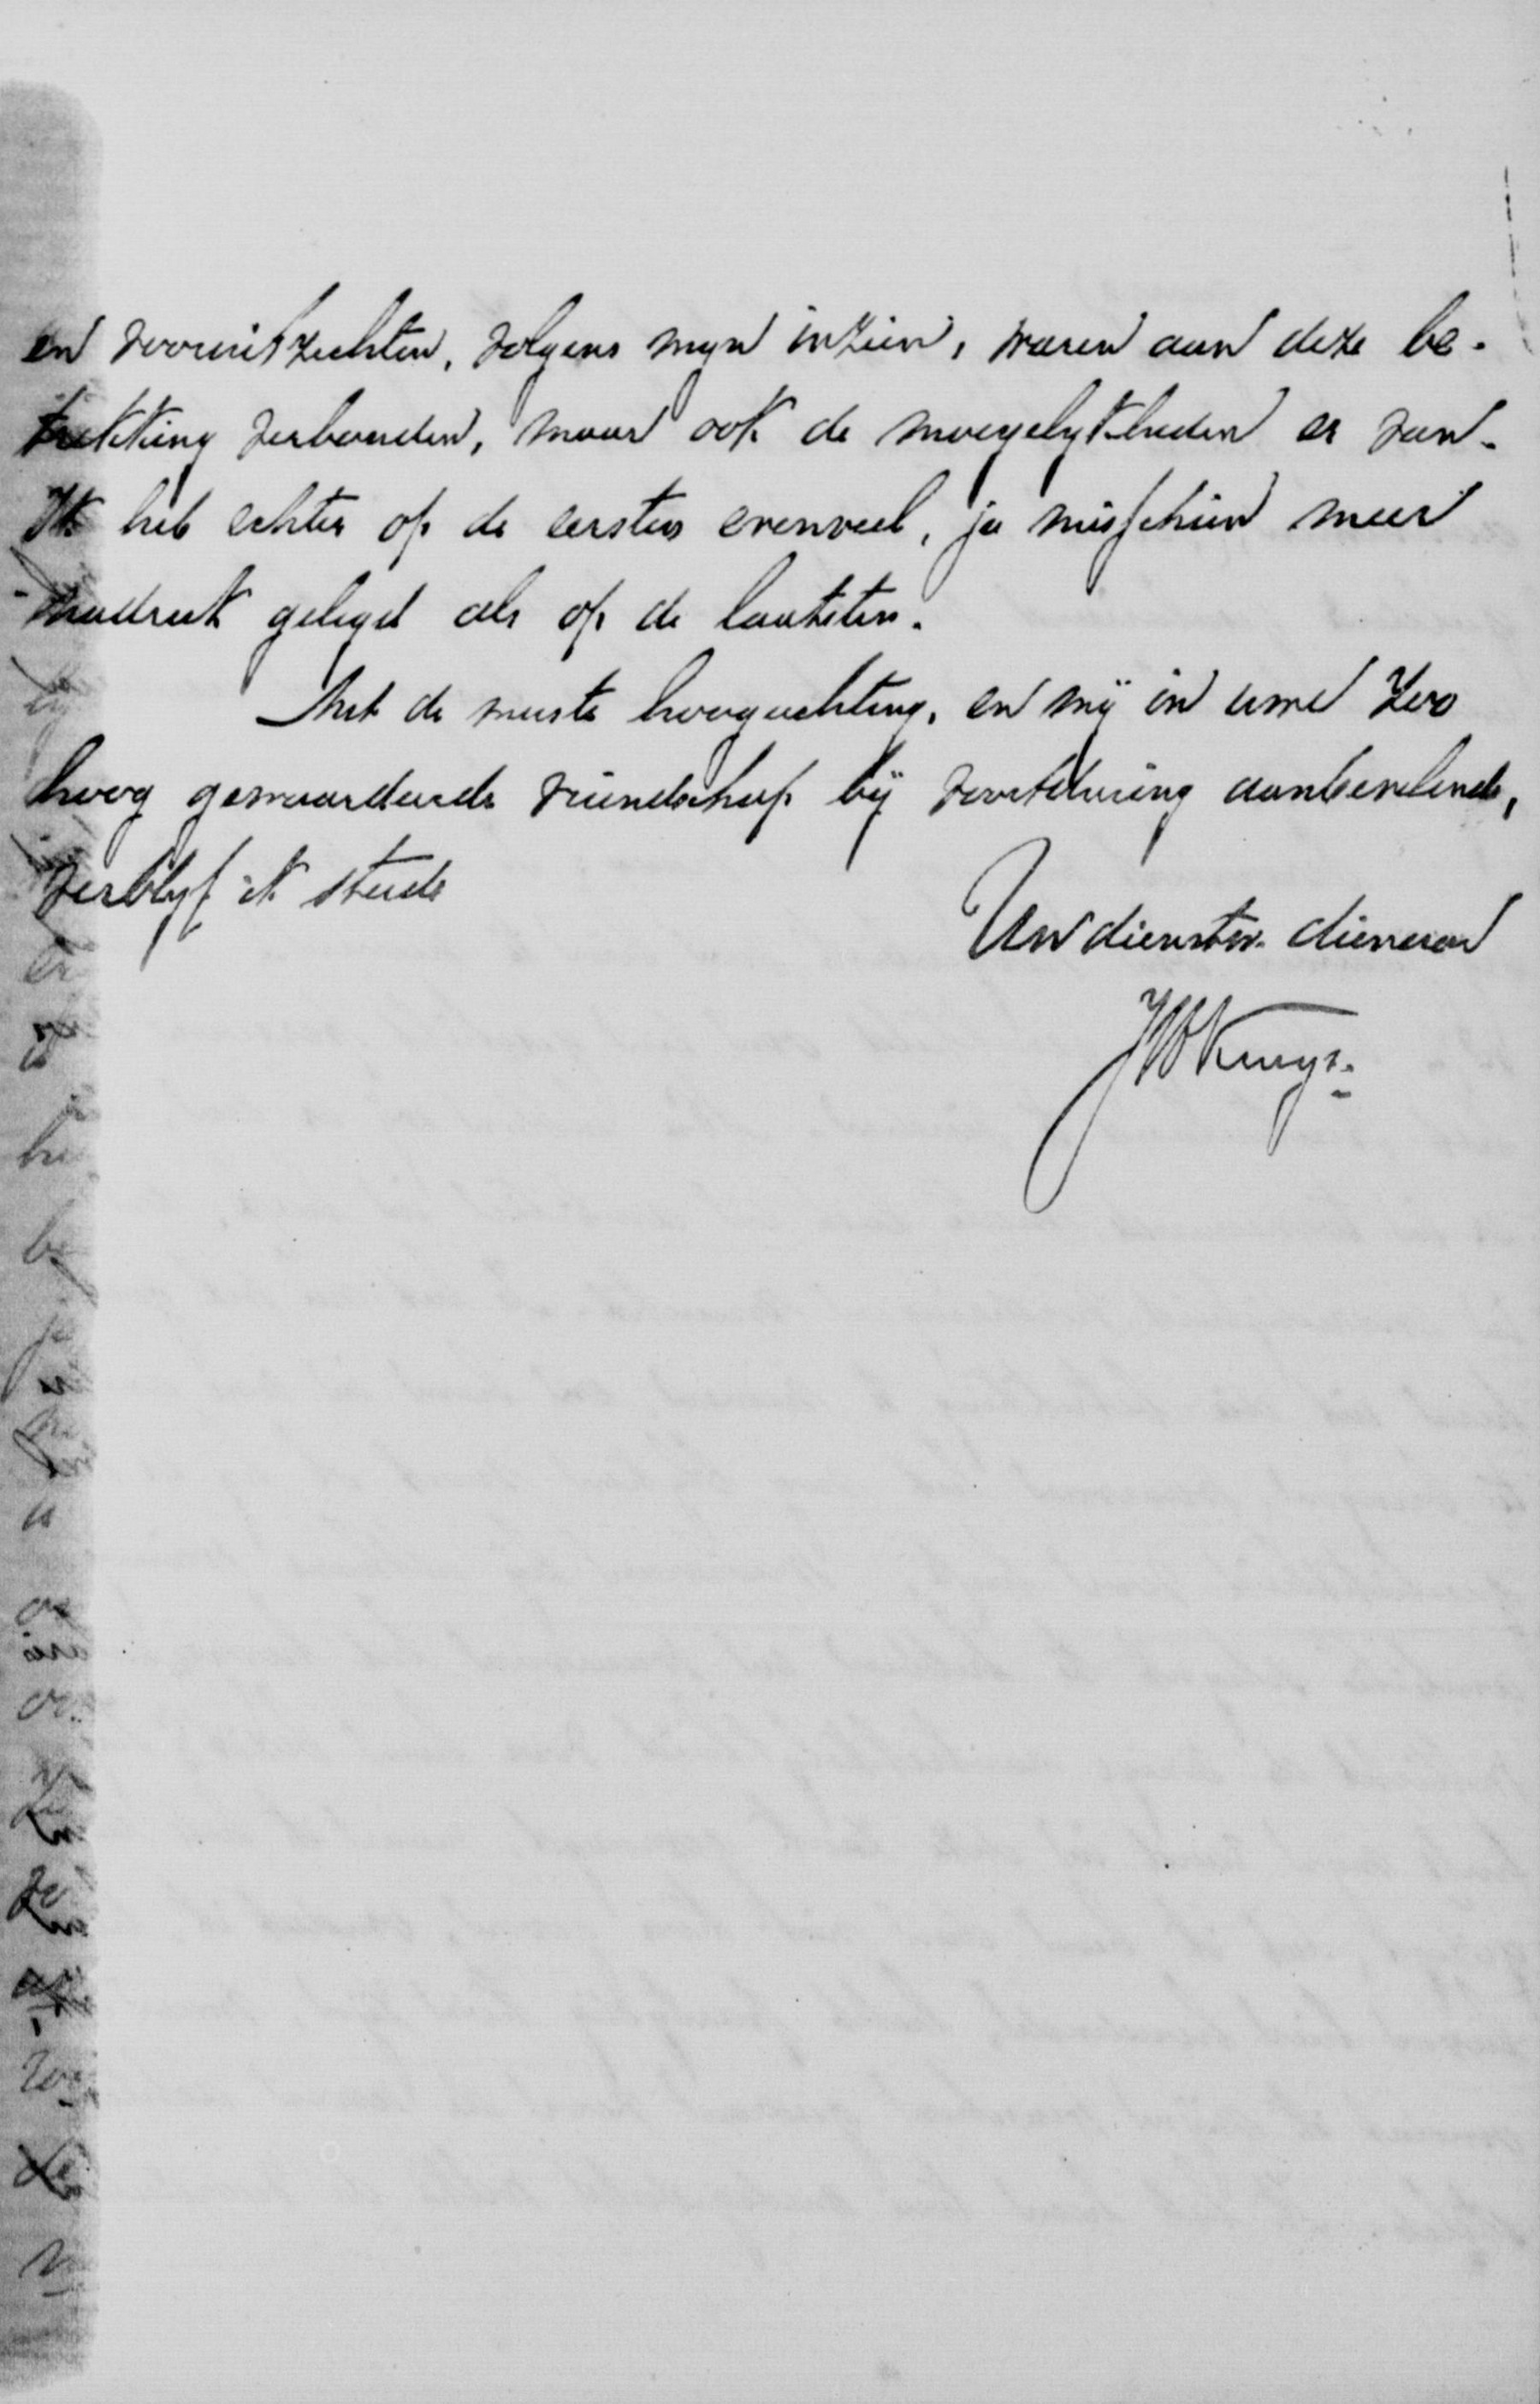 en vooruitzichten, volgens myn inzien, waren aan deze be-
trekking verbonden, maar ook de moeyelykheden er van.
Ik heb echter op de eersten evenveel, ja misschien meer
nadruk gelegd als op de laatsten.
Met de meeste hoogachting, en mij in uwe zoo
hoog gewaardeerde vriendschap bij voortduring aanbevelende,
verblyf ik steeds
Uw dienstw. dienaar